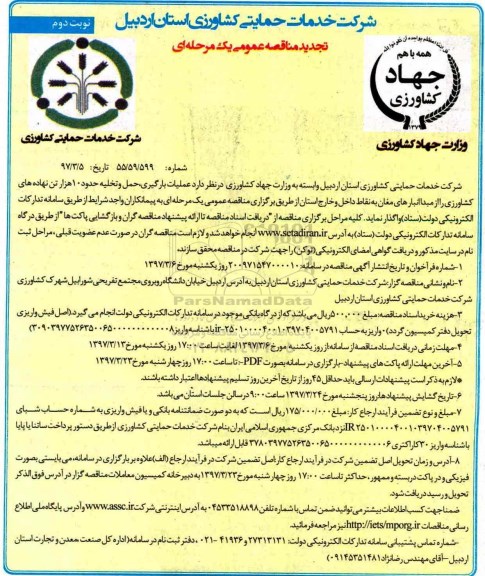 شرکت خدمات حمایتی کشاورزی استان اردبیل
نوبت دوم
تجدید مناقصه عمومی یک مرحله‌ای
همه با هم
جهاد
کشاورزی
وزارت جهاد کشاورزی
شرکت خدمات حمایتی کشاورزی
شماره: ۵۵/۵۹/۵۹۹ تاریخ: ۹۷/۳/۵
شرکت خدمات حمایتی کشاورزی استان اردبیل وابسته به وزارت جهاد کشاورزی درنظر دارد عملیات بارگیری، حمل و تخلیه حدود ۱۰ هزار تن نهاده های
کشاورزی را از مبدا انبار های مغان به نقاط داخل و خارج استان از طریق برگزاری مناقصه عمومی یک مرحله ای به پیمانکاران واجد شرایط از طریق سامانه تدارکات
الکترونیکی دولت (ستاد) واگذار نماید. کلیه مراحل برگزاری مناقصه از "دریافت اسناد مناقصه تا ارائه پیشنهاد مناقصه گران و بازگشایی پاکت ها" از طریق درگاه
سامانه تدارکات الکترونیکی دولت (ستاد) به آدرس www.setadiran.ir انجام خواهد شد و لازم است مناقصه گران در صورت عدم عضویت قبلی، مراحل ثبت
نام در سایت مذکور و دریافت گواهی امضای الکترونیکی (توکن) را جهت شرکت در مناقصه محقق سازند.
۱-شماره فراخوان و تاریخ انتشار آگهی مناقصه در سامانه: ۲۰۰۹۷۱۵۴۷۰۰۰۰۱۰ روز یکشنبه مورخ ۱۳۹۷/۳/۶
۲-نام و نشانی مناقصه گزار: شرکت خدمات حمایتی کشاورزی استان اردبیل به آدرس اردبیل خیابان دانشگاه روبروی مجتمع تفریحی شورابیل شهرک کشاورزی
شرکت خدمات حمایتی کشاورزی استان اردبیل
۳-هزینه خرید اسناد مناقصه: مبلغ ۵۰۰,۰۰۰ ریال می باشد که از درگاه بانکی موجود در سامانه تدارکات الکترونیکی دولت انجام می گیرد (اصل فیش واریزی
تحویل دفتر کمیسیون گردد) -واریز به حساب
۴-مهلت زمانی دریافت اسناد مناقصه از سامانه: از روز یکشنبه مورخ ۱۳۹۷/۳/۶ لغایت ساعت ۱۷:۰۰ روز یکشنبه مورخ ۱۳۹۷/۳/۱۳
۵-آخرین مهلت ارائه پاکت های پیشنهاد -بارگزاری در سامانه بصورت PDF -: تا ساعت ۱۷:۰۰ روز چهارشنبه مورخ ۱۳۹۷/۳/۲۳
*لازم به ذکر است پیشنهادات ارسالی باید حداقل ۴۵ روز از تاریخ آخرین روز تسلیم پیشنهادها اعتبار داشته باشند.
۶-تاریخ گشایش پیشنهادها: روز پنجشنبه مورخ ۱۳۹۷/۳/۲۴ ساعت ۹:۰۰ در سالن جلسات استان می باشد.
۷-مبلغ و نوع تضمین فرآیند ارجاع کار: مبلغ ۱۷۵/۰۰۰/۰۰۰ ریال است که به دو صورت ضمانتنامه بانکی و یا فیش واریزی به شماره حساب شبای
نزد بانک مرکزی جمهوری اسلامی ایران بنام شرکت خدمات حمایتی کشاورزی از طریق دستور پرداخت ساتنا یا پایا
با شناسه واریز ۳۰ کاراکتری قابل ارائه میباشد.
۸-آدرس و زمان تحویل اصل تضمین شرکت در فرآیند ارجاع کار: اصل تضمین شرکت در فرآیند ارجاع (الف) علاوه بر بارگزاری در سامانه، می بایستی بصورت
فیزیکی و در پاکت دربسته و ممهور، حداکثر تا ساعت ۱۷:۰۰ روز چهارشنبه مورخ ۱۳۹۷/۳/۲۳ به دبیرخانه کمیسیون معاملات مناقصه گزار در آدرس فوق الذکر
تحویل و رسید دریافت شود.
ضمنا جهت کسب اطلاعات بیشتر می توانید ضمن تماس با شماره تلفن ۰۴۵۳۳۵۱۸۸۹۸ به آدرس اینترنتی شرکت www.assc.ir و آدرس پایگاه ملی اطلاع
رسانی مناقصات http://iets/mporg.ir نیز مراجعه فرمائید.
-شماره تماس پشتیبانی سامانه تدارکات الکترونیکی دولت: ۲۷۳۱۳۱۳۱ و ۴۱۹۳۴-۰۲۱، دفتر ثبت نام در سامانه (اداره کل صنعت معدن و تجارت استان
اردبیل -آقای مهندس رضانژاد ۰۹۱۴۵۳۵۱۴۸۱)
ParsNamadData